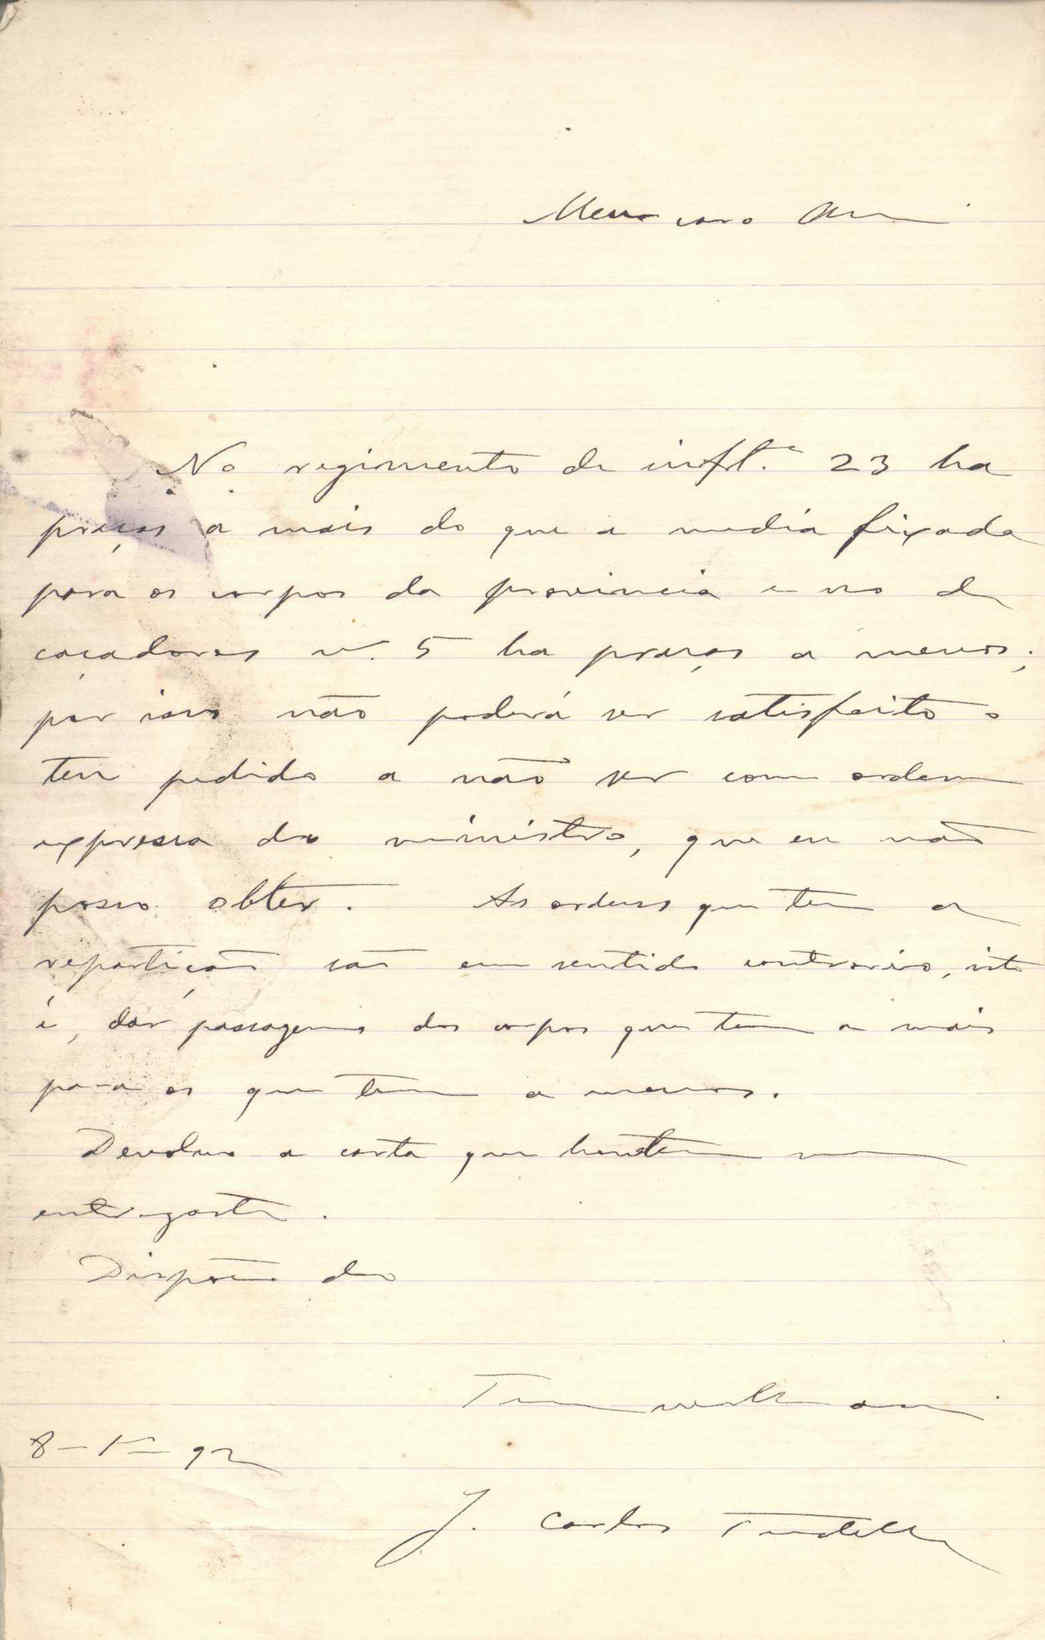 Meu caro Am
No regimento de inft.ª 23 ha
praças a mais do que a media fixada
para os corpos da provincia e no de
caçadores n. 5 ha praças a menos;
por isso não poderá ser satisfeito o
teu pedido a não ser com ordem
expressa do ministro, que eu não
posso obter. As ordens que tem a
repartição são em sentido contrario, isto
é, dar passagens dos corpos que tem a mais
para os que tem a menos.
Devolvo a carta que hontem me
entregaste.
Dispõe do
Teu velho am
8-1-92
J. Carlos